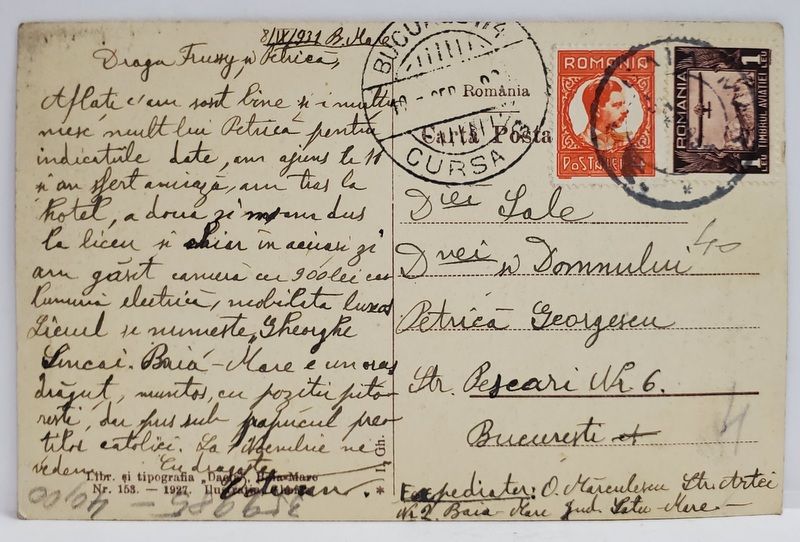 8/IX/931 B. Mare
Draga Frussy, și Petrică,
Aflati c'am sosit bine si-i multu
mesc mult lui Petrică pentru
indicatiile date, am ajuns la 11
si un sfert amiază, am tras la
hotel, a doua zi dus
la liceu si chiar în aceiasi zi
am găsit cameră cu 900 lei cu
lumină electrică, mobilata luxos
Liceul se numeste „Gheorghe
Sincai. Baiá-Mare e un oraș
drăguț, muntos, cu pozitii pito-
resti, dar pus sub papucul preo-
tilor catolici. La Noembrie ne
vedem. Cu dragoste
Libr. și tipografia Baia-Mare
Nr. 153. — 1927.
I. Gh.
*
România
Carta Posta
BUCUREȘTI 4
CURSA
ROMANIA
POSTA
ROMANIA
1 LEU TIMBRUL AVIATIEI 1 LEU
Dlei Sale
Dnei si Domnului
40
Petrică Georgescu
Str. Pescari Nr. 6.
Bucuresti
Expediator: O. Mărculescu Str. Artei
Nr 2. Baia-Mare Jud. Satu-Mare —